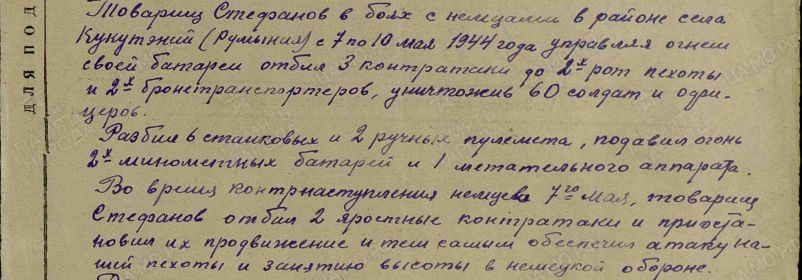 Товарищ Стефанов в боях с немцами в районе села
Кукутэний (Румыния) с 7 по 10 мая 1944 года управляя огнем
своей батареи отбил 3 контратаки до 2х рот пехоты
и 2х бронетранспортеров, уничтожив 60 солдат и офи-
церов.
Разбил 6 станковых и 2 ручных пулемета, подавил огонь
2х минометных батарей и 1 метательного аппарата.
Во время контрнаступления немцев 7го мая, товарищ
Стефанов отбил 2 яростные контратаки и приоста-
новил их продвижение и тем самым обеспечил атаку на-
шей пехоты и занятию высоты в немецкой обороне.
ДЛЯ ПОД